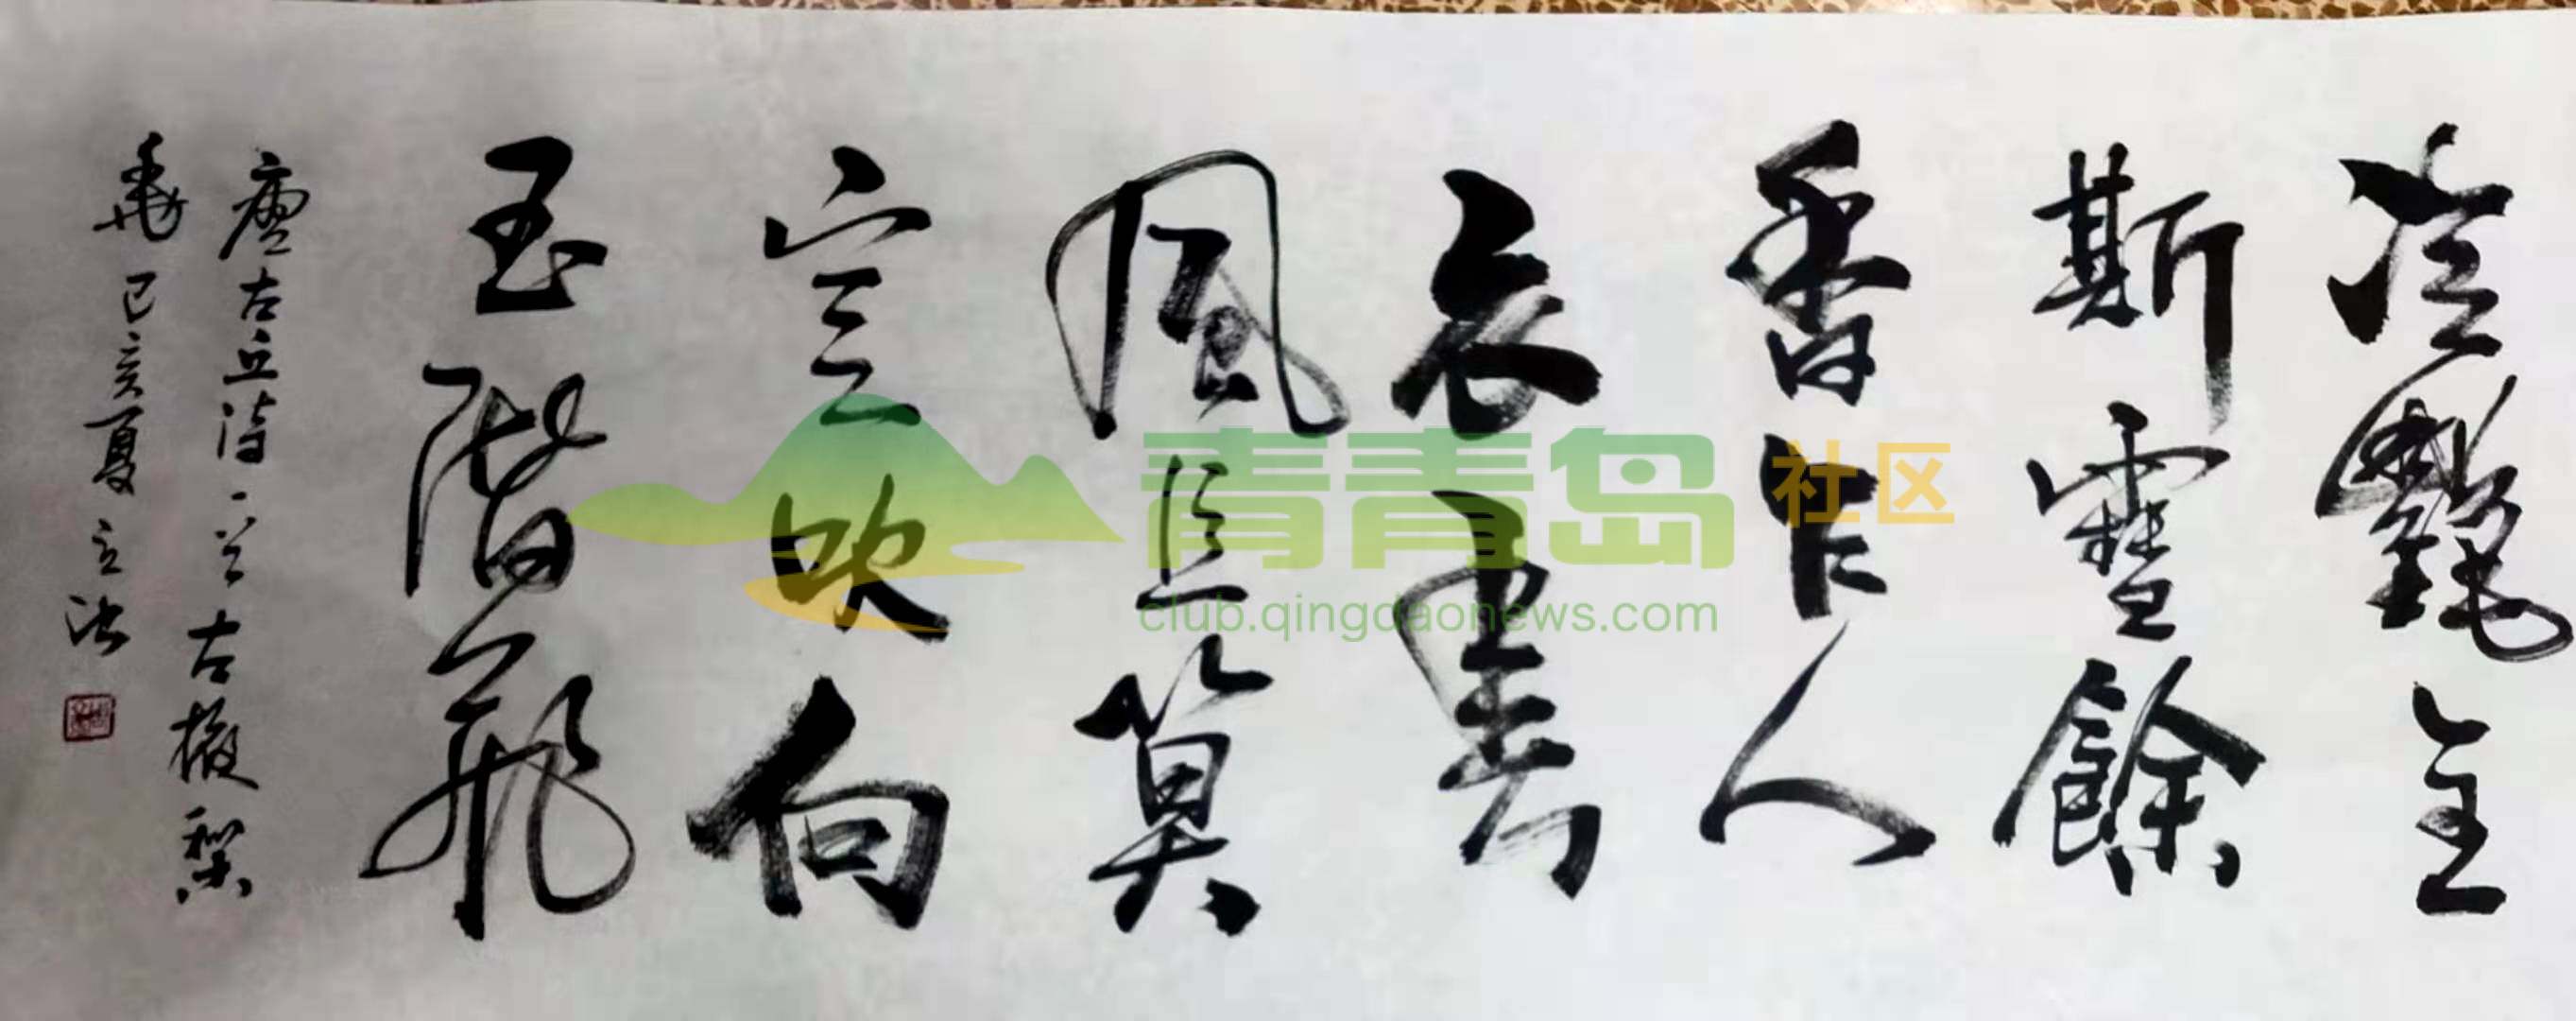 冷艷全
斯雪餘
香乍入
衣春
風且莫
定吹向
玉階飛
唐左丘诗一首左掖梨
花己亥夏立法
青青岛社区
club.qingdaonews.com